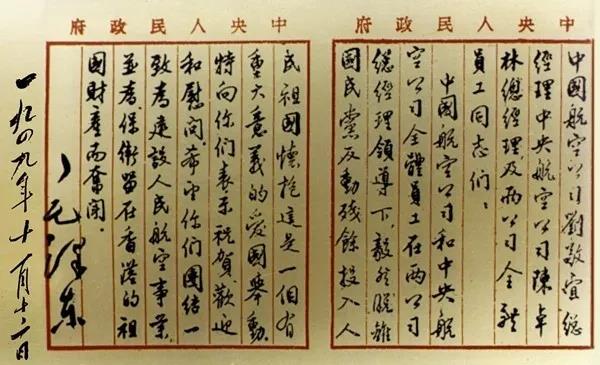 中央人民政府
中國航空公司劉敬宜總
經理中央航空公司陳卓
林總經理及兩公司全體
員工同志們：
中國航空公司和中央航
空公司全體員工在兩公司
總經理領導下，毅然脫離
國民黨反動殘餘投入人
中央人民政府
民祖國懷抱這是一個有
重大意義的愛國舉動。
特向你們表示祝賀歡迎
和慰問。希望你們團結一
致為建設人民航空事業，
並為保衛留在香港的祖
國財產而奮鬥。
毛澤东
一九四九年十一月十二日